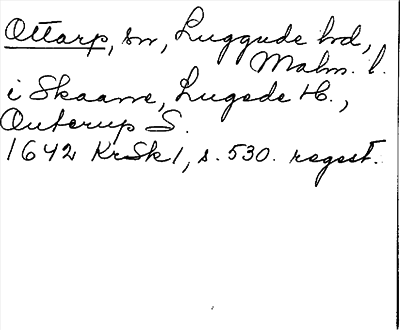 Ottarp, sn, Luggude hd,
Malm. l.
i Skaane, Lugede H.,
Outerup S.
1642 KrSk 1, s. 530. regest.